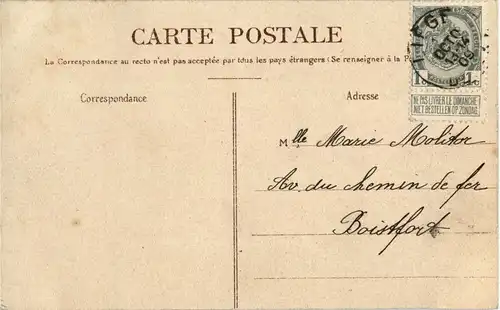 CARTE POSTALE
La Correspondance au recto n'est pas acceptée par tous les pays étrangers (Se renseigner à la
Correspondance
Adresse
LIEGE
OCTO
09
1 1
NE PAS LIVRER LE DIMANCHE
NIET BESTELLEN OP ZONDAG
Mlle Marie Molitor
Av. du chemin de fer
Boistfort